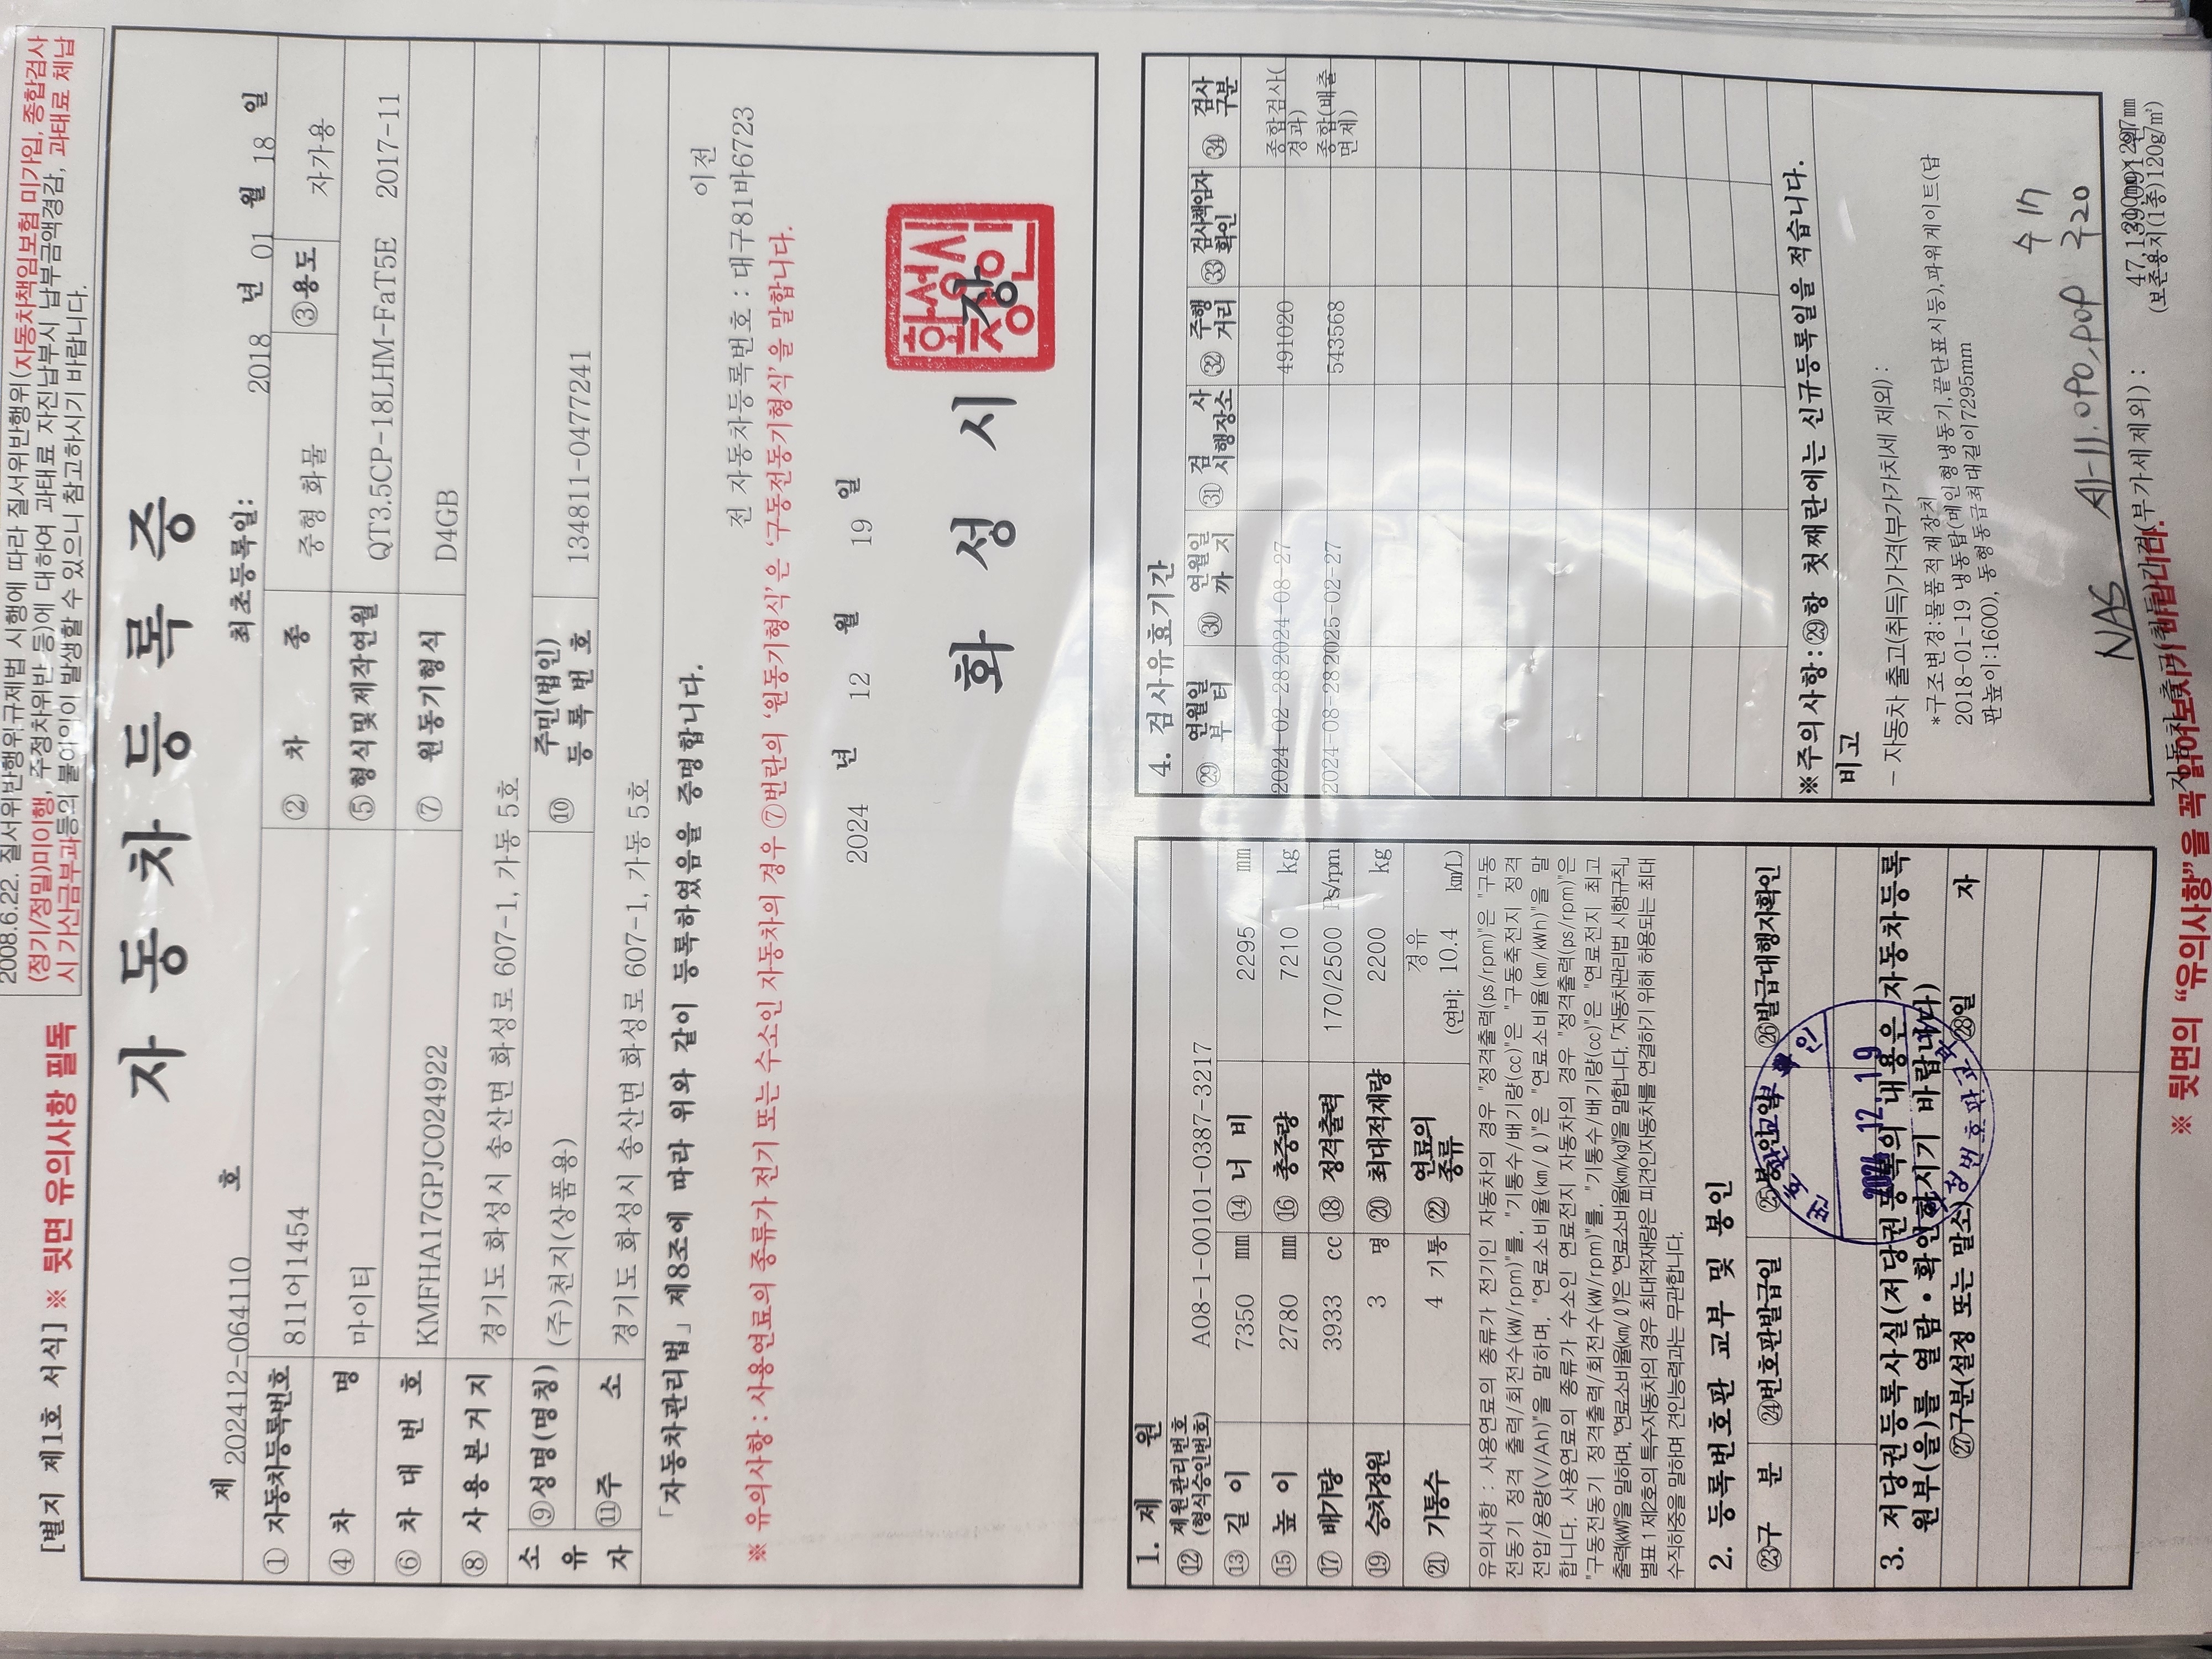 [별지 제1호 서식] ※ 뒷면 유의사항 필독
2008.6.22. 질서위반행위규제법 시행에 따라 질서위반행위(자동차책임보험 미가입, 종합검사
(정기/정밀)미이행, 주정차위반 등)에 대하여 과태료 자진납부시 납부금액경감, 과태료 체납
시 가산금부과등의 불이익이 발생할 수 있으니 참고하시기 바랍니다.
자 동 차 등 록 증
제 202412-064110 호 최초등록일: 2018 년 01 월 18 일
① 자동차등록번호 811어1454 ② 차 종 중형 화물 ③용도 자가용
④ 차 명 마이티 ⑤형식및제작연월 QT3.5CP-18LHM-FaT5E 2017-11
⑥ 차 대 번 호 KMFHA17GPJC024922 ⑦ 원동기형식 D4GB
⑧ 사용본거지 경기도 화성시 송산면 화성로 607-1, 가동 5호
소유자 ⑨성명(명칭) (주)천지(상품용) ⑩ 주민(법인)등록번호 134811-0477241
⑪주 소 경기도 화성시 송산면 화성로 607-1, 가동 5호
「자동차관리법」 제8조에 따라 위와 같이 등록하였음을 증명합니다.
이전
전 자동차등록번호 : 대구81바6723
※ 유의사항 : 사용연료의 종류가 전기 또는 수소인 자동차의 경우 ⑦번란의 '원동기형식'은 '구동전동기형식'을 말합니다.
2024 년 12 월 19 일
화 성 시 장
화성시장인
1. 제 원
⑫ 제원관리번호(형식승인번호) A08-1-00101-0387-3217
⑬ 길 이 7350 ㎜ ⑭ 너 비 2295 ㎜
⑮ 높 이 2780 ㎜ ⑯ 총중량 7210 kg
⑰ 배기량 3933 cc ⑱ 정격출력 170/2500 Ps/rpm
⑲ 승차정원 3 명 ⑳ 최대적재량 2200 kg
㉑ 기통수 4 기통 ㉒ 연료의 종류 경유 (연비: 10.4 ㎞/L)
유의사항 : 사용연료의 종류가 전기인 자동차의 경우 "정격출력(ps/rpm)"은 "구동
전동기 정격 출력/회전수(㎾/rpm)"를, "기통수/배기량(cc)"은 "구동축전지 정격
전압/용량(V/Ah)"을 말하며, "연료소비율(㎞/ℓ)"은 "연료소비율(㎞/kWh)"을 말
합니다. 사용연료의 종류가 수소인 연료전지 자동차의 경우 "정격출력(ps/rpm)"은
"구동전동기 정격출력/회전수(㎾/rpm)"를, "기통수/배기량(cc)"은 "연료전지 최고
출력(㎾)"을 말하며, "연료소비율(㎞/ℓ)"은 "연료소비율(㎞/kg)"을 말합니다. 「자동차관리법 시행규칙」
별표 1 제2호의 특수자동차의 경우 최대적재량은 피견인자동차를 연결하기 위해 허용되는 최대
수직하중을 말하며 견인능력과는 무관합니다.
2. 등록번호판 교부 및 봉인
㉓구 분 ㉔번호판발급일 ㉕봉인일 ㉖발급대행자확인
2024. 12. 19
3. 저당권등록사실(저당권등록의 내용은 자동차등록
원부(을)를 열람·확인하시기 바랍니다)
㉗구분(설정 또는 말소) ㉘일 자
4. 검사유효기간
㉙ 연월일부터 ㉚ 연월일까지 ㉛ 검사시행장소 ㉜ 주행거리 ㉝ 검사책임자확인 ㉞ 검사구분
2024-02-28 2024-08-27 491020 종합검사(경과)
2024-08-28 2025-02-27 543568 종합(배출면제)
※주의사항:㉙항 첫째란에는 신규등록일을 적습니다.
비고
- 자동차 출고(취득)가격(부가가치세 제외) :
*구조변경:물품적재장치
2018-01-19 냉동탑(메인형냉동기,끝단표시등),파워게이트(답
판높이:1600), 동형동급최대길이7295mm
수 1n
NAS
(부가세 제외) :
(보존용지(1종)120g/㎡)
※ 뒷면의 "유의사항"을 꼭 읽어보시기 바랍니다.